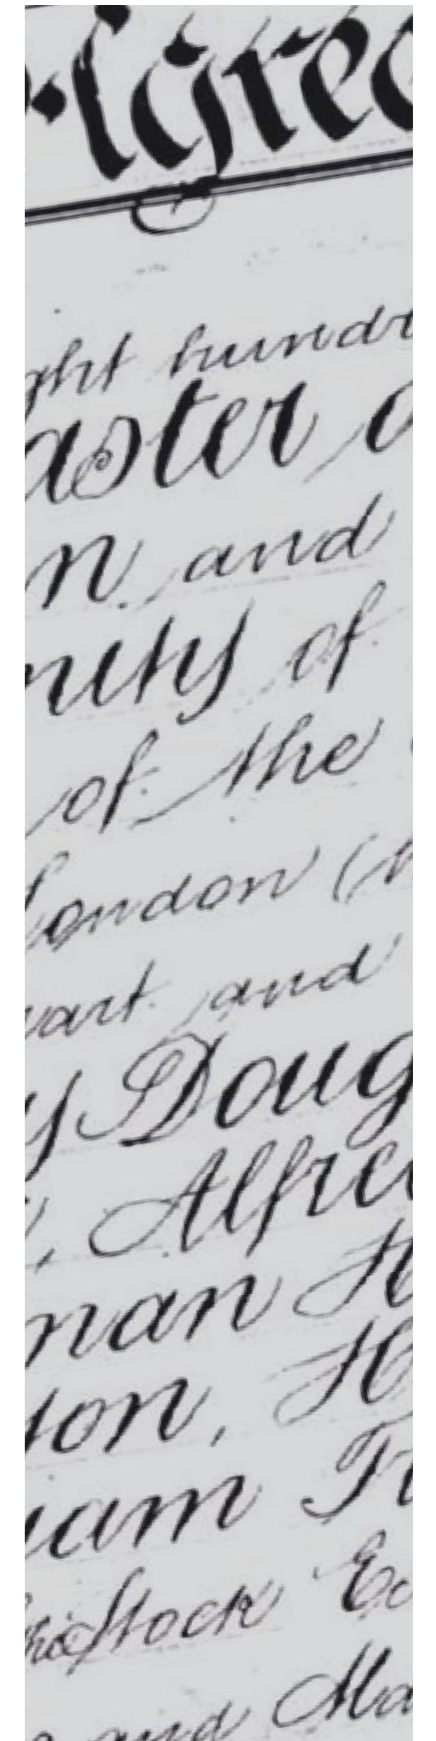 Agree
ght hundr
aster o
n and
nty of
of the
London (h
vart and
y Doug
, Alfre
man H
ton, H
iam Fr
Stock Ec
and Ma